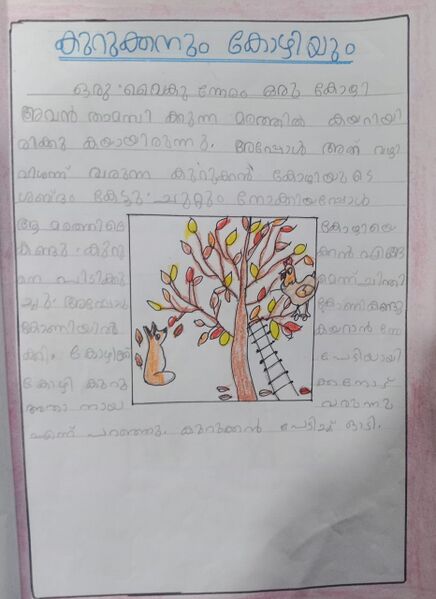 കുറുക്കനും കോഴിയും
ഒരു വൈകുന്നേരം ഒരു കോഴി
അവൻ താമസിക്കുന്ന മരത്തിൽ കയറിയി
രിക്കുകയായിരുന്നു. അപ്പോൾ അത് വഴി
വിശന്ന് വരുന്ന കുറുക്കൻ കോഴിയുടെ
ശബ്ദം കേട്ടു. ചുറ്റും നോക്കിയപ്പോൾ
ആ മരത്തിലെ കോഴിയെ
കണ്ടു. കുറുക്കൻ എങ്ങ
നെ പിടിക്കുമെന്ന് ചിന്തി
ച്ചു. അപ്പോൾ കോണികണ്ടു
കോണിയിൽ കയറാൻ നോ
ക്കി. കോഴിക്ക് പേടിയായി
കോഴി കുറുക്കനോട്
അതാ നായ വരുന്നു
എന്ന് പറഞ്ഞു. കുറുക്കൻ പേടിച്ച് ഓടി.